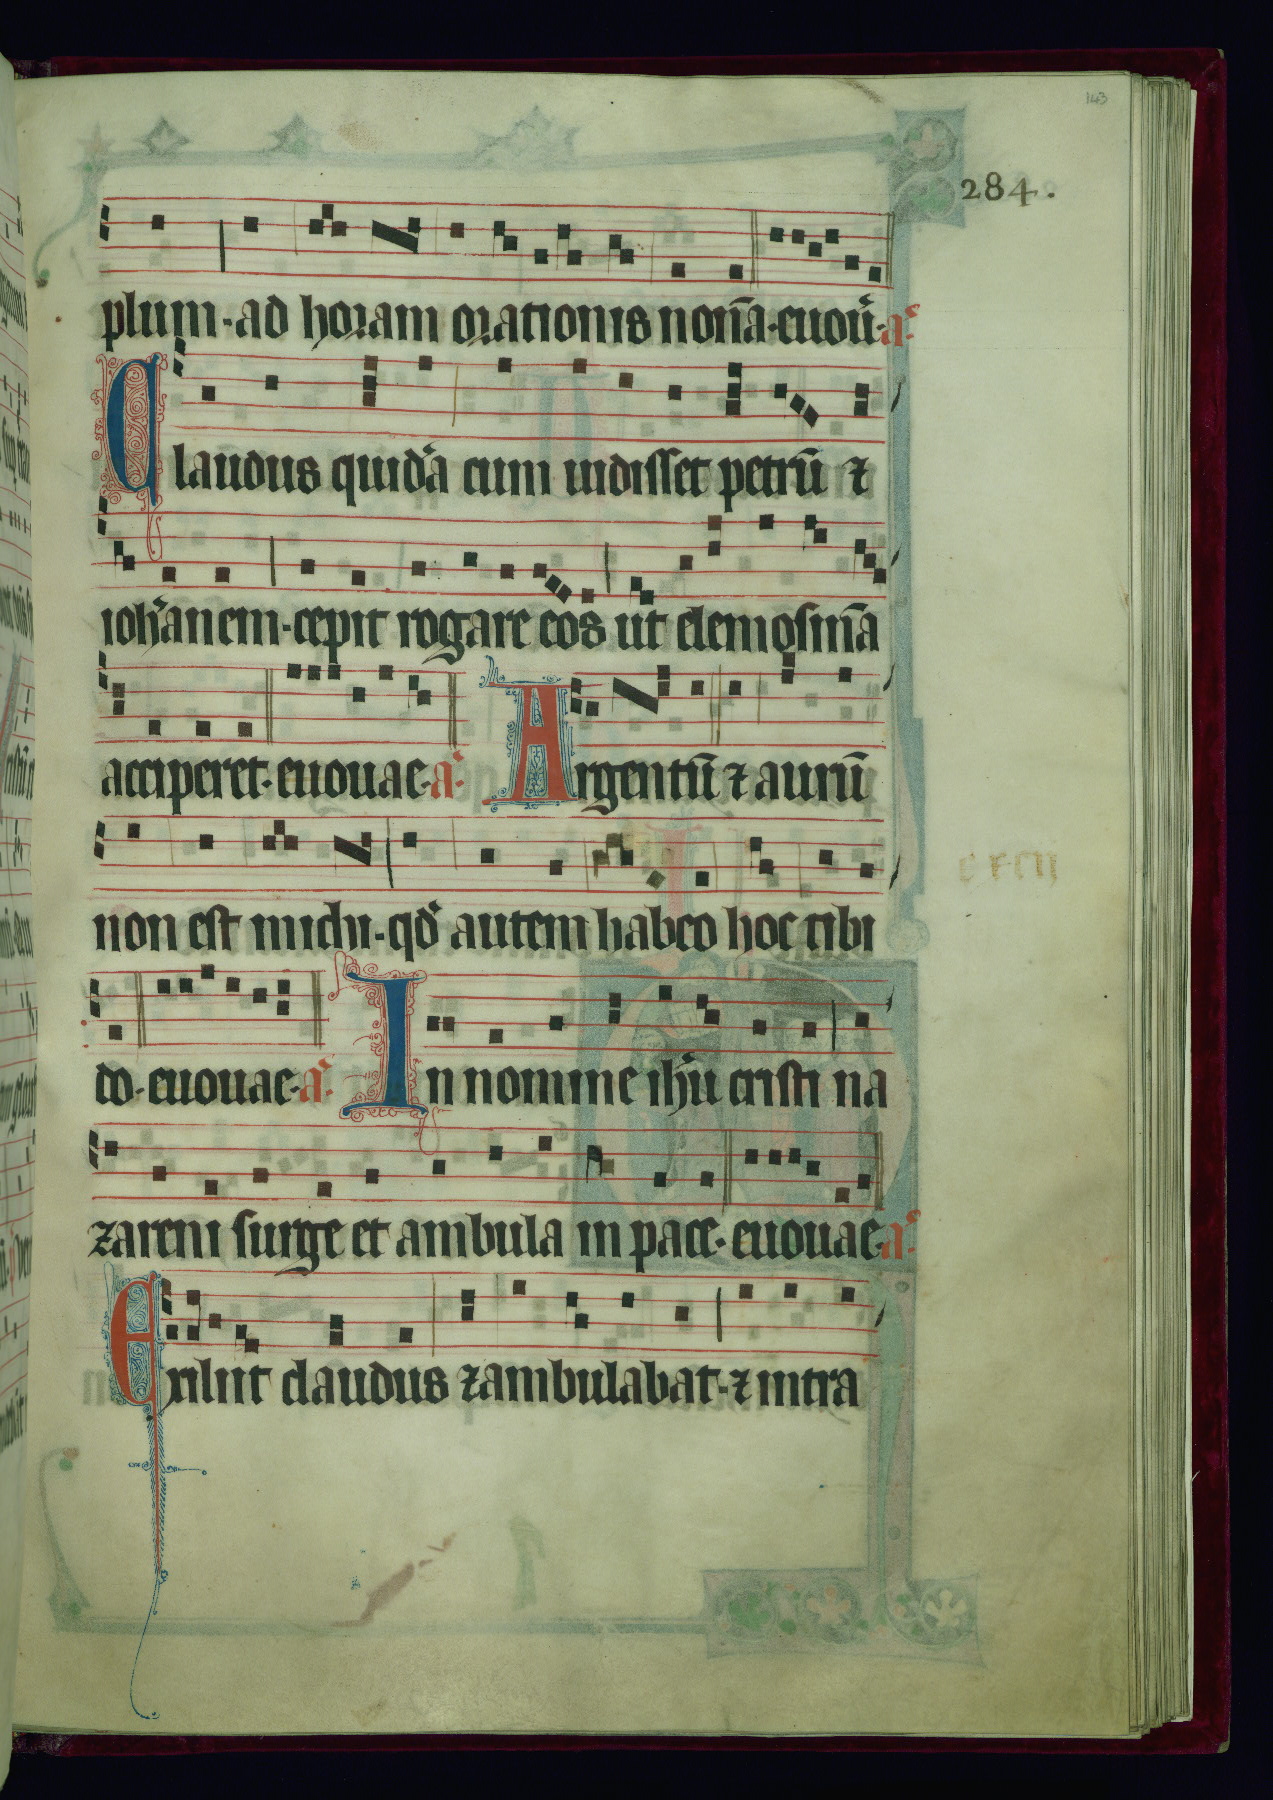 143
284.
plum·ad horam orationis nonā·euoū·a͛·
Claudus quidā cum uidisset petrū ⁊
ioh̄anem·cepit rogare eos ut elemosinā
acciperet·euouae·a͛· Argentū ⁊ aurū
non est michi·qđ autem habeo hoc tibi
do·euouae·a͛· In nomine ih̄u cristi na
zareni surge et ambula in pace·euouae·a͛·
Exiliit claudus ⁊ambulabat·⁊ intra